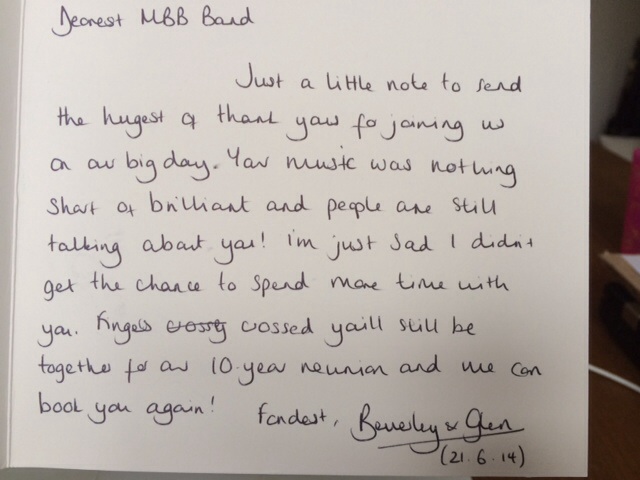 Dearest MBB Band
Just a little note to send
the hugest of thank yous for joining us
on our big day. Your music was nothing
short of brilliant and people are still
talking about you! I'm just sad I didn't
get the chance to spend more time with
you. Fingers crossed you'll still be
together for our 10-year reunion and we can
book you again! Fondest, Beverley & Glen
(21.6.14)